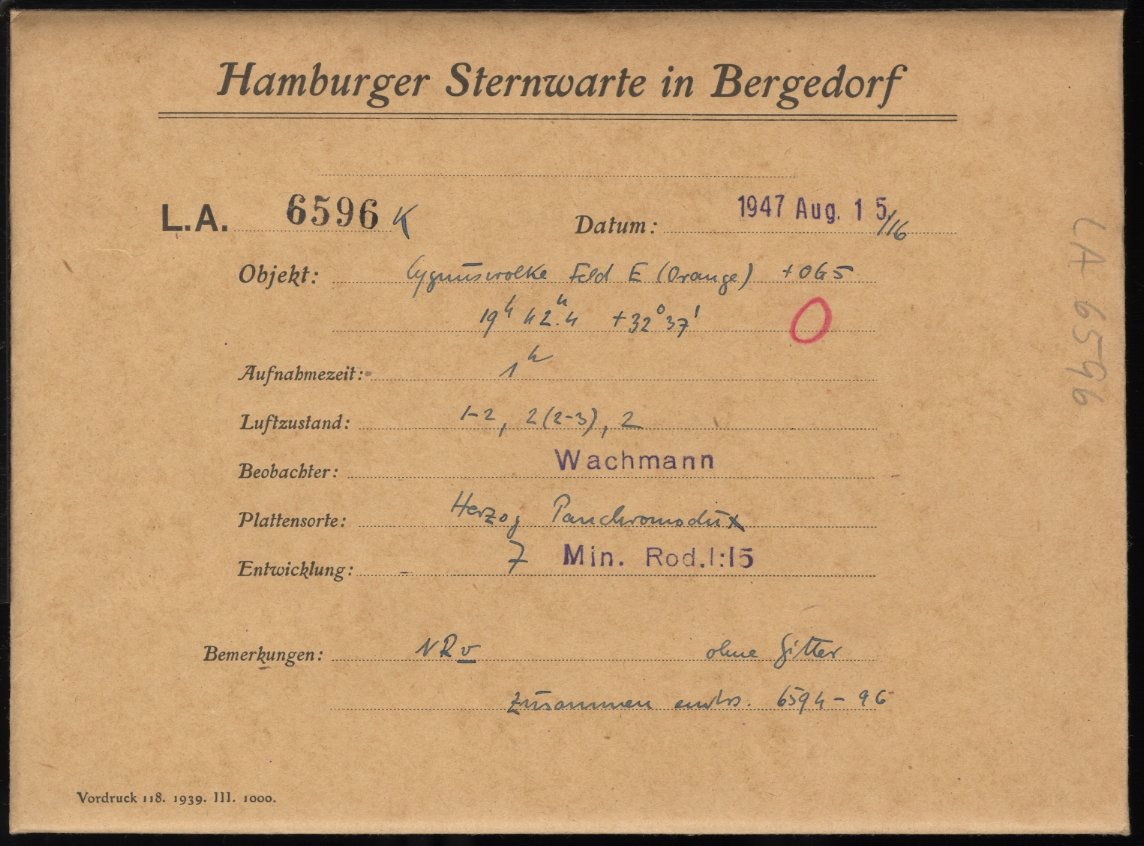 Hamburger Sternwarte in Bergedorf
L.A. 6596 K Datum: 1947 Aug. 15/16
Objekt: Cygnuswolke Feld E (Orange) +OG5
19h 42m.4 +32° 37' O
Aufnahmezeit: 1h
Luftzustand: 1-2, 2(2-3), 2
Beobachter: Wachmann
Plattensorte: Herzog Panchromodux
Entwicklung: 7 Min. Rod.1:15
Bemerkungen: ohne Gitter
Zusammen entw. 6594-96
Vordruck 118. 1939. III. 1000.
LA 6596